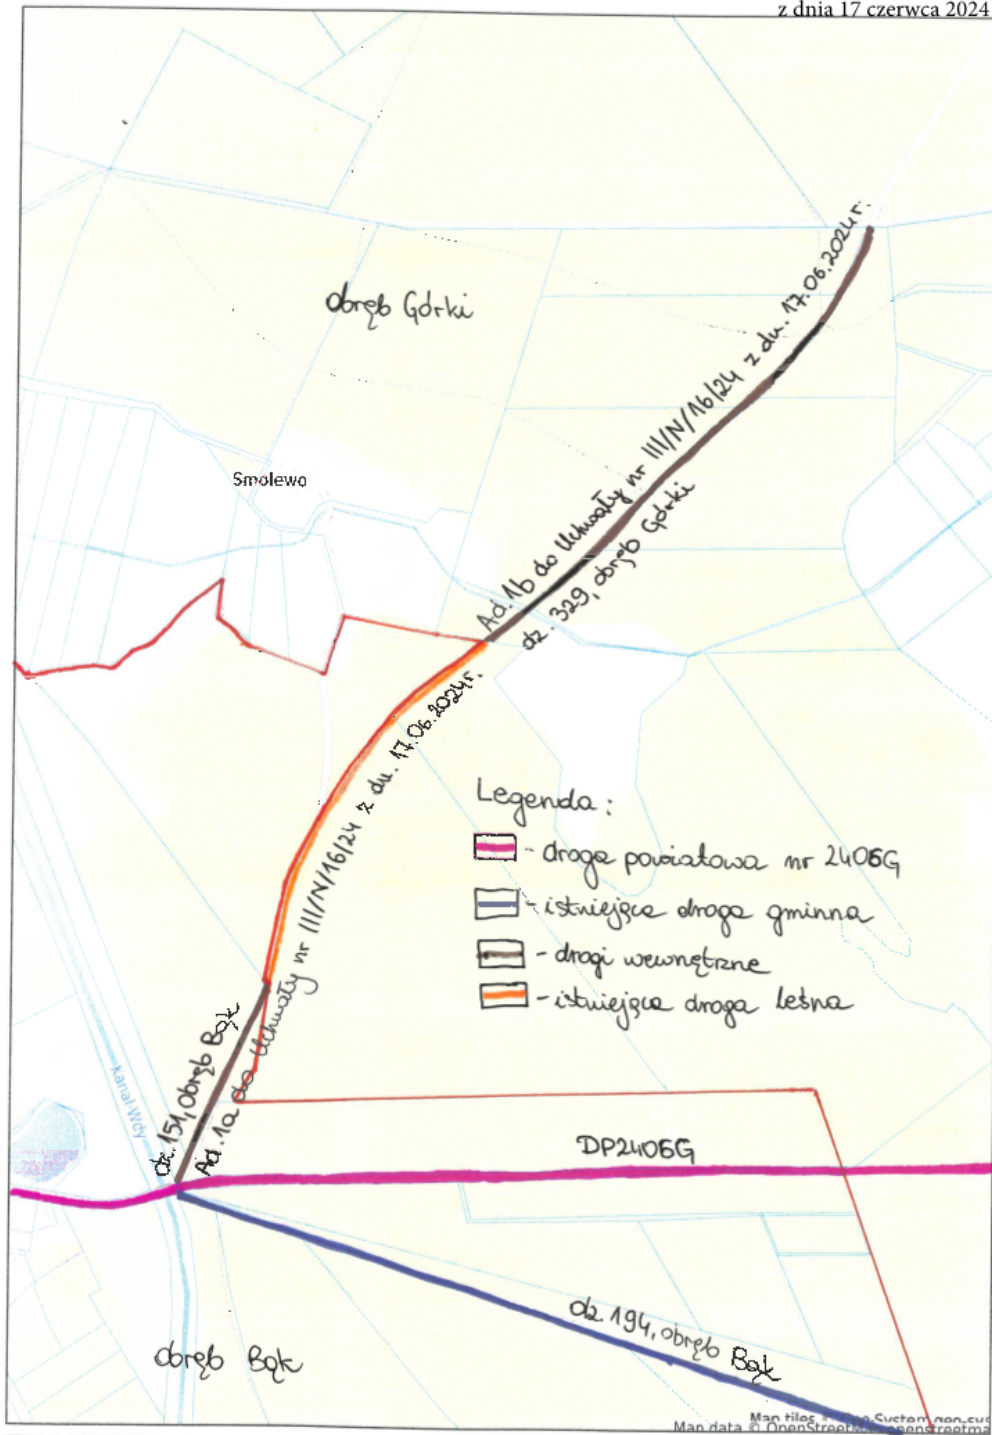 z dnia 17 czerwca 2024
obręb Górki
Smolewo
Ad. 1b do Uchwały nr III/N/16/24 z dn. 17.06.2024r.
dz. 329, obręb Górki
Ad. 1a do Uchwały nr III/N/16/24 z dn. 17.06.2024r.
Legenda :
- droga powiatowa nr 2406G
- istniejąca droga gminna
- drogi wewnętrzne
- istniejąca droga leśna
dz. 151, obręb Bąk
Kanał Wdy
DP2406G
dz. 194, obręb Bąk
obręb Bąk
Map tiles © Geo-System geo-sys
Map data © OpenStreetMap openstreetma